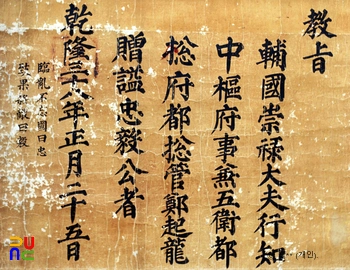 教旨
輔國崇祿大夫行知
中樞府事兼五衛都
捴府都捴管鄭起龍
贈諡忠毅公者
乾隆三十八年正月二十五日
臨亂不忘國曰忠
致果殺敵曰毅
(개인).